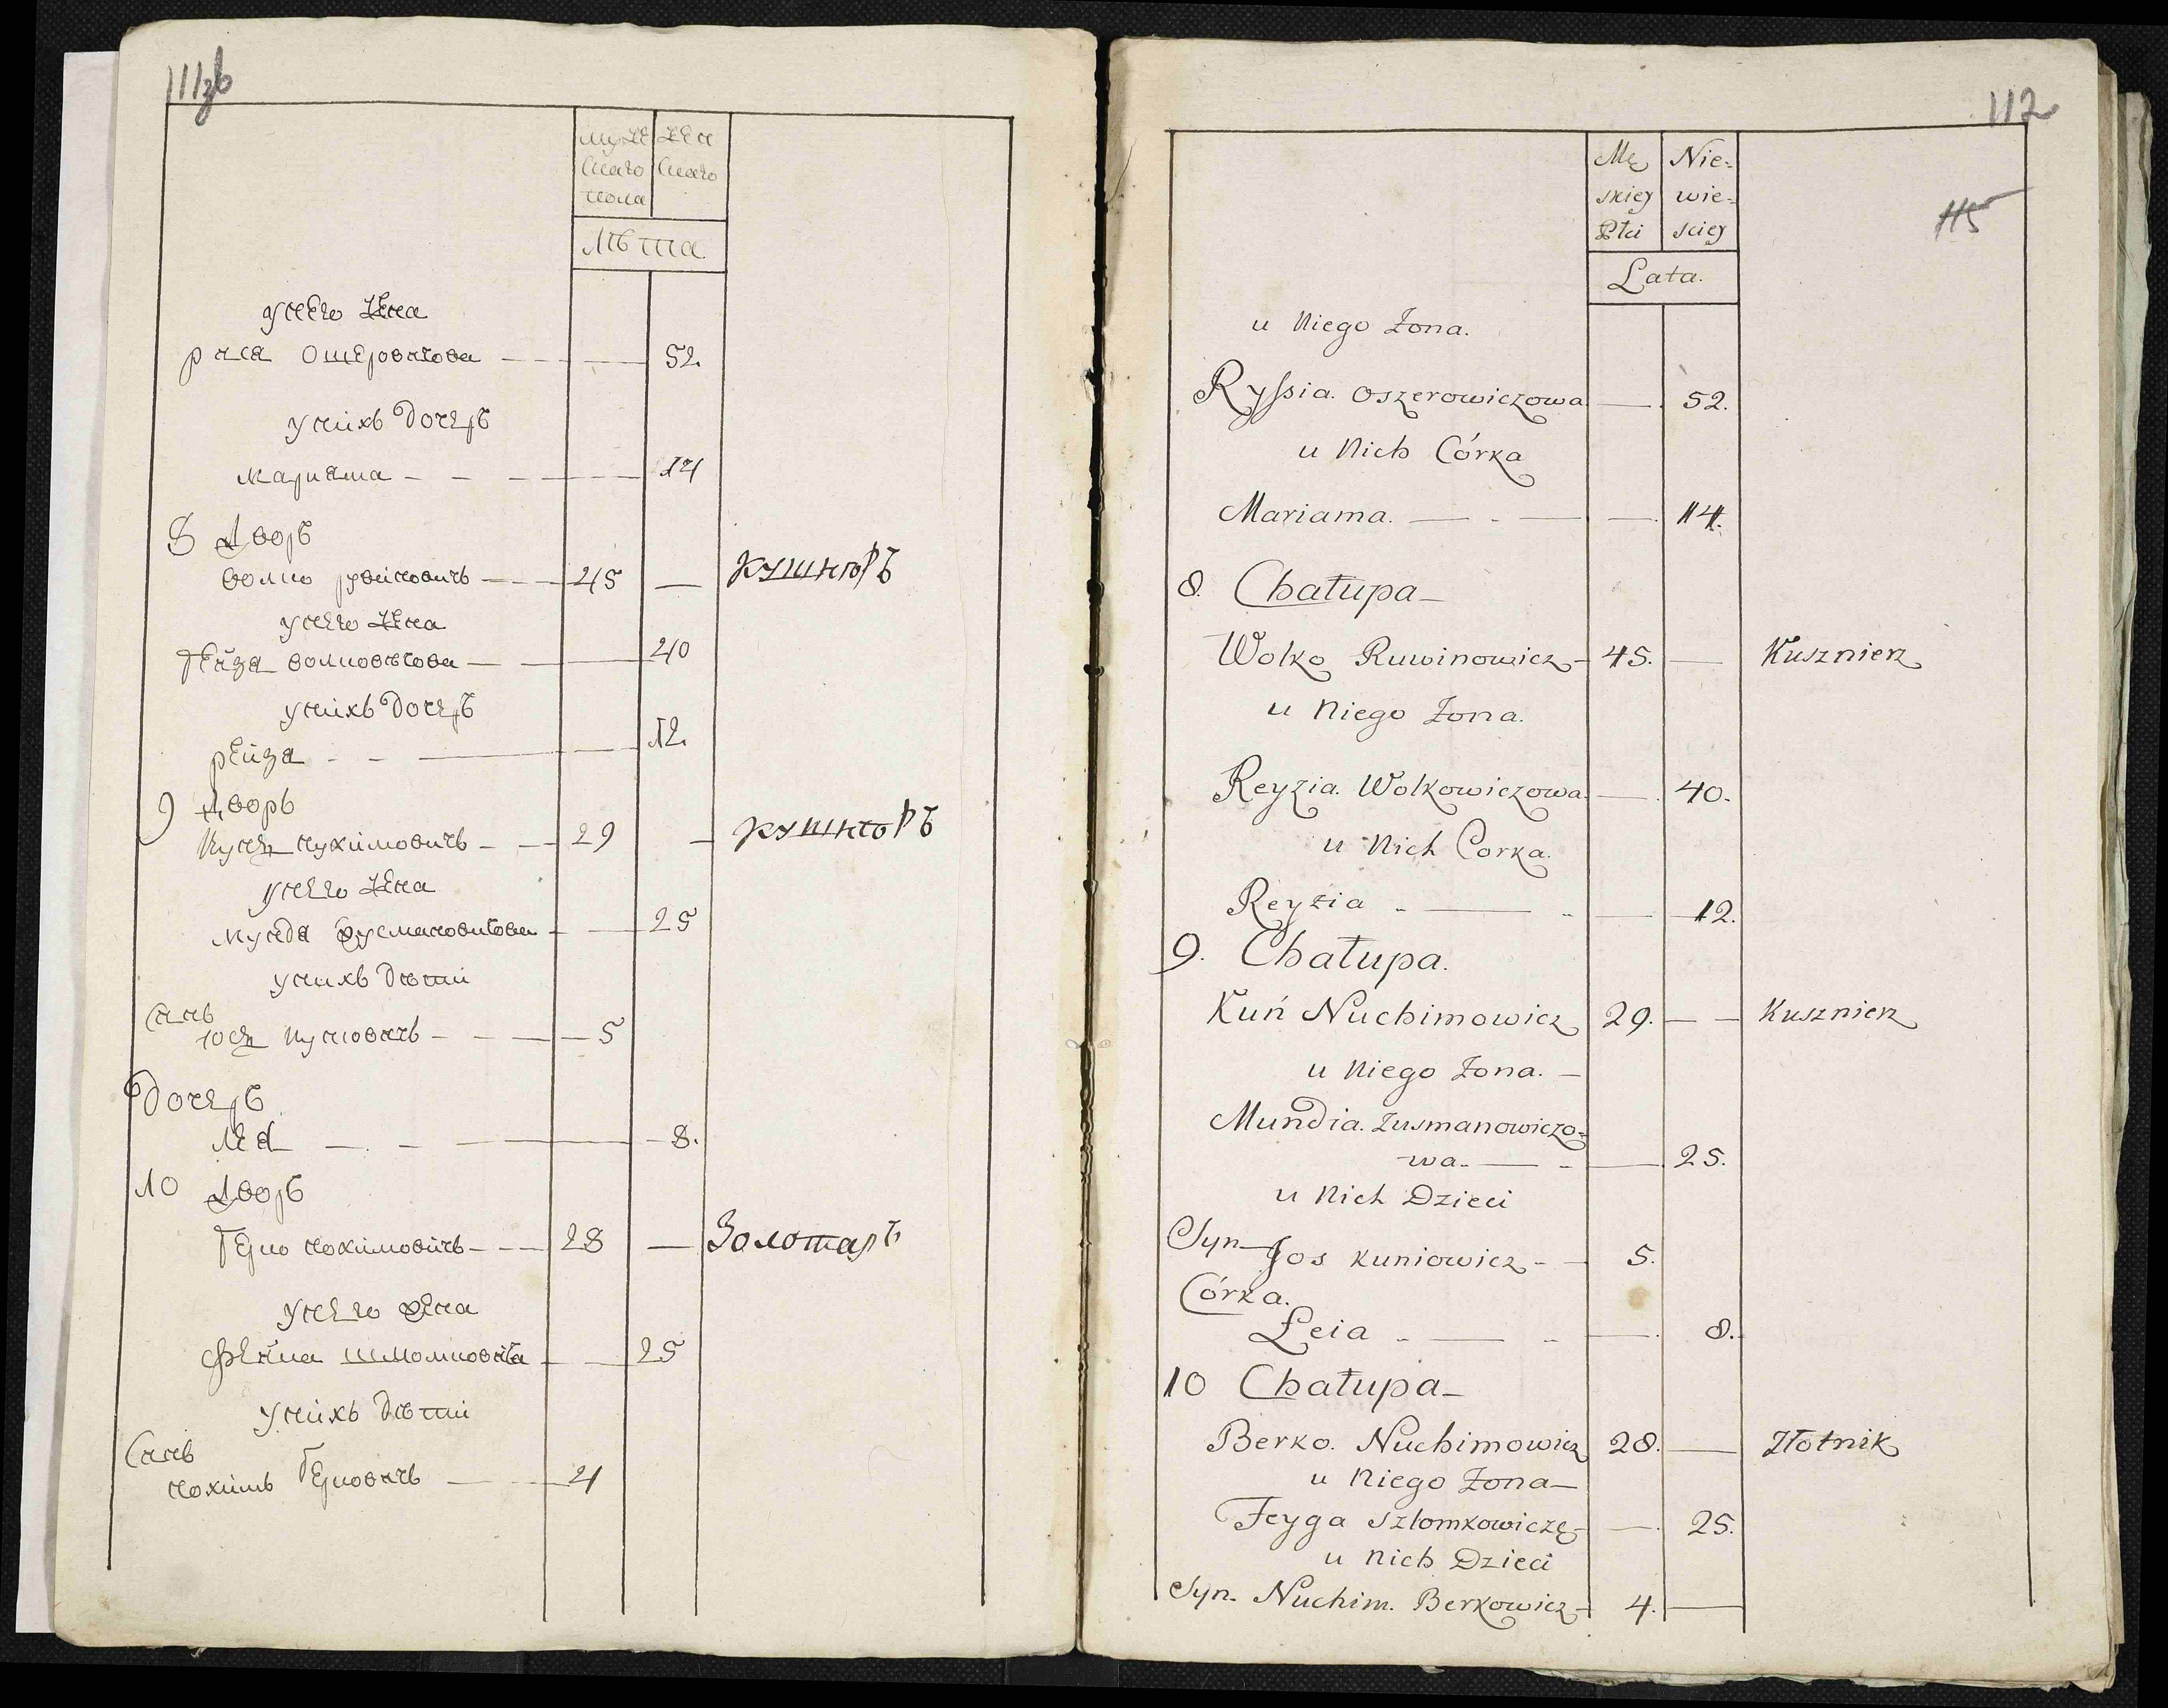 111зв
муже
скаго
пола
жен
скаго
лѣта
унего жена
рися ошеровичова — 52
унихъ дочерь
марияма — 14
8 Дворъ
волко рувиновичь — 45 — кушнюръ
унего жена
рейзя волковичова — 40
унихъ дочерь
рейзя — 12
9 Дворъ
нухимовичь — 29 — кушнюръ
унего жена
мундя зусмановичова — 25
унихъ дѣти
сынъ
куновичь — 5
Дочерь
лея — 8.
10 Дворъ
берко нохимовичь — 28 — Золотарь
унего жена
фейга — 25
унихъ дѣти
сынъ
нохимъ берковичь — 4
112
115
Mę
skiey
Płci
Nie-
wie-
sciey
Lata.
u Niego Żona.
Ryssia. Oszerowiczowa — 52.
u Nich Córka
Mariama. — 14.
8. Chałupa —
Wolko Ruwinowicz — 45. — Kusznierz
u Niego Żona.
Reyzia. Wolkowiczowa. — 40.
u Nich Corka.
Reyzia — 12.
9. Chałupa.
Kuń Nuchimowicz 29. — Kusznierz
u Niego Żona. —
Mundia. Zusmanowiczo-
wa. — 25.
u Nich Dzieci
Syn — Jos Kuniowicz — 5.
Córka.
Leia — 8.
10 Chałupa —
Berko. Nuchimowicz 28. — Złotnik
u Niego Żona —
Feyga Szlomkowiczę — 25.
u Nich Dzieci
Syn. Nuchim. Berkowicz — 4. —